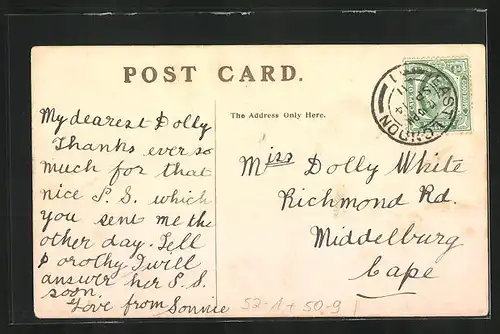 POST CARD.
The Address Only Here.
My dearest Dolly
Thanks ever so
much for that
nice P.S. which
you sent me the
other day. Tell
Dorothy I will
answer her P.S.
soon.
Love from Sonnie
Miss Dolly White
Richmond Rd.
Middelburg
Cape
EAST LONDON
52-1+50-9